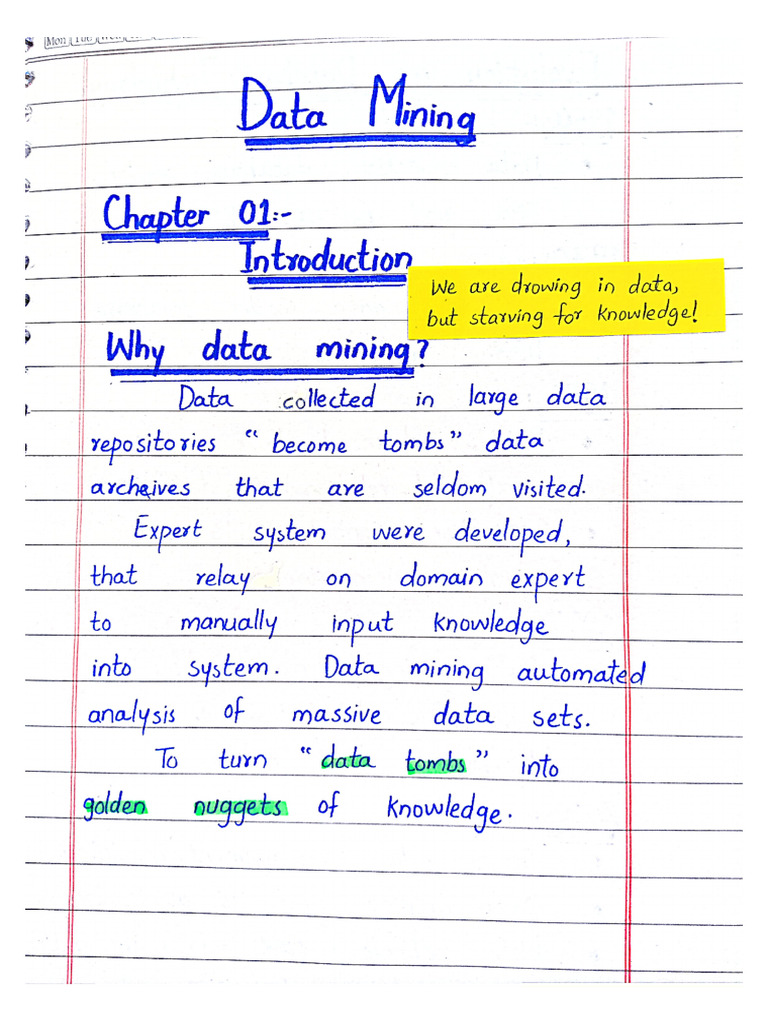 Mon Tue Wed
Data Mining
Chapter 01:-
Introduction
We are drowing in data,
but starving for knowledge!
Why data mining?
Data collected in large data
repositories "become tombs" data
archeives that are seldom visited.
Expert system were developed,
that relay on domain expert
to manually input knowledge
into system. Data mining automated
analysis of massive data sets.
To turn "data tombs" into
golden nuggets of knowledge.